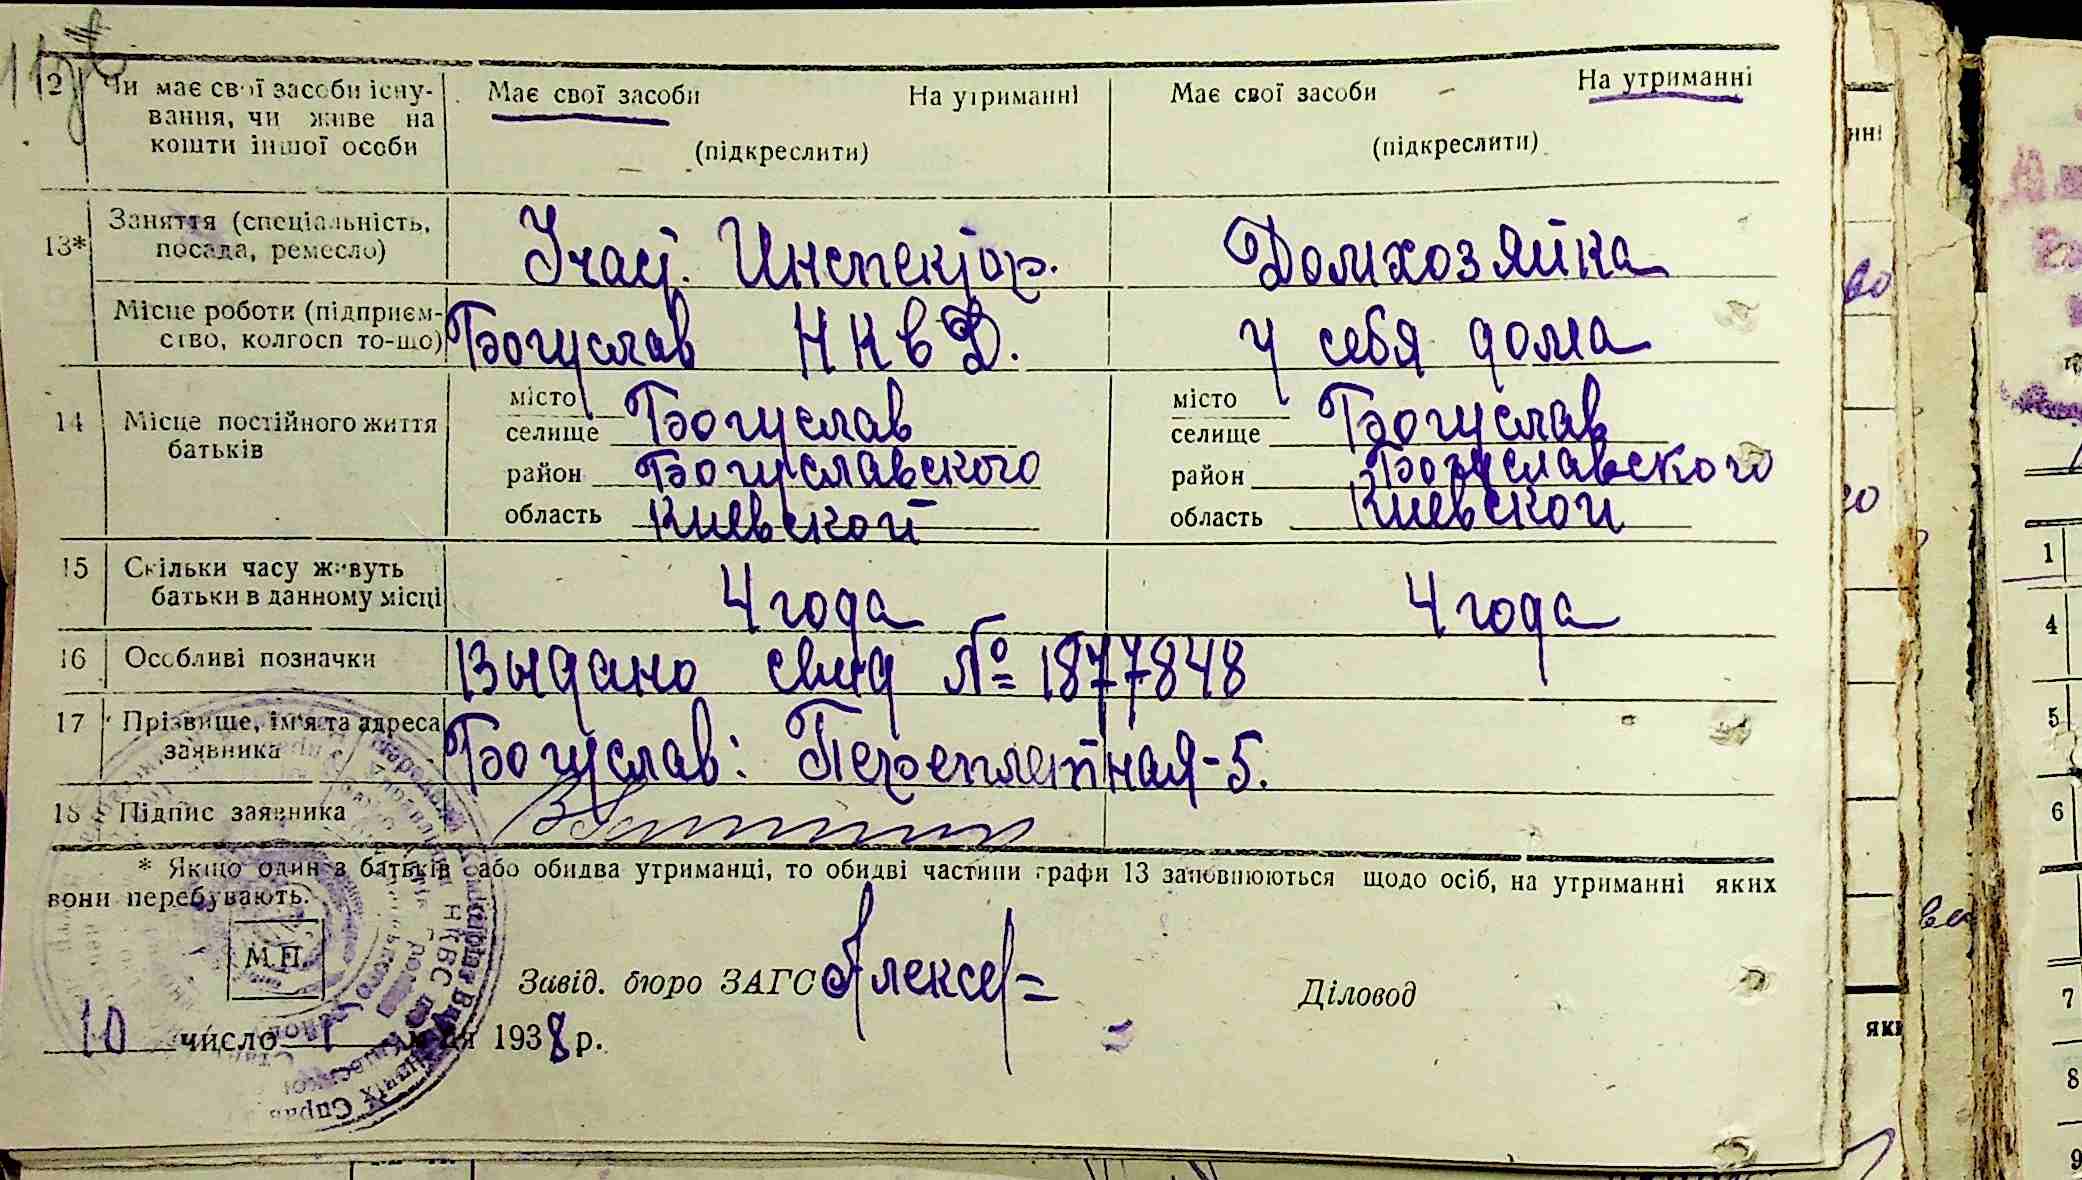 12 Чи має свої засоби існу- Має свої засоби На утриманні Має свої засоби На утриманні
вання, чи живе на
кошти іншої особи (підкреслити) (підкреслити)
13* Заняття (спеціальність, Участ. Инспектор. Домхозяйка
посада, ремесло)
Місце роботи (підприєм- Богуслав НКВД. у себя дома
ство, колгосп то-що)
14 Місце постійного життя місто Богуслав місто Богуслав
батьків селище селище
район Богуславского район Богуславского
область Киевской область Киевской
15 Скільки часу живуть 4 года 4 года
батьки в данному місці
16 Особливі позначки Выдано свид № 1877848
17 Прізвище, ім'я та адреса Богуслав: Переплетная-5.
заявника
18 Підпис заявника
* Якщо один з батьків або обидва утриманці, то обидві частини графи 13 заповнюються щодо осіб, на утриманні яких
вони перебувають.
М.П.
Завід. бюро ЗАГС Діловод
10 число 1 м-ця 1938 р.